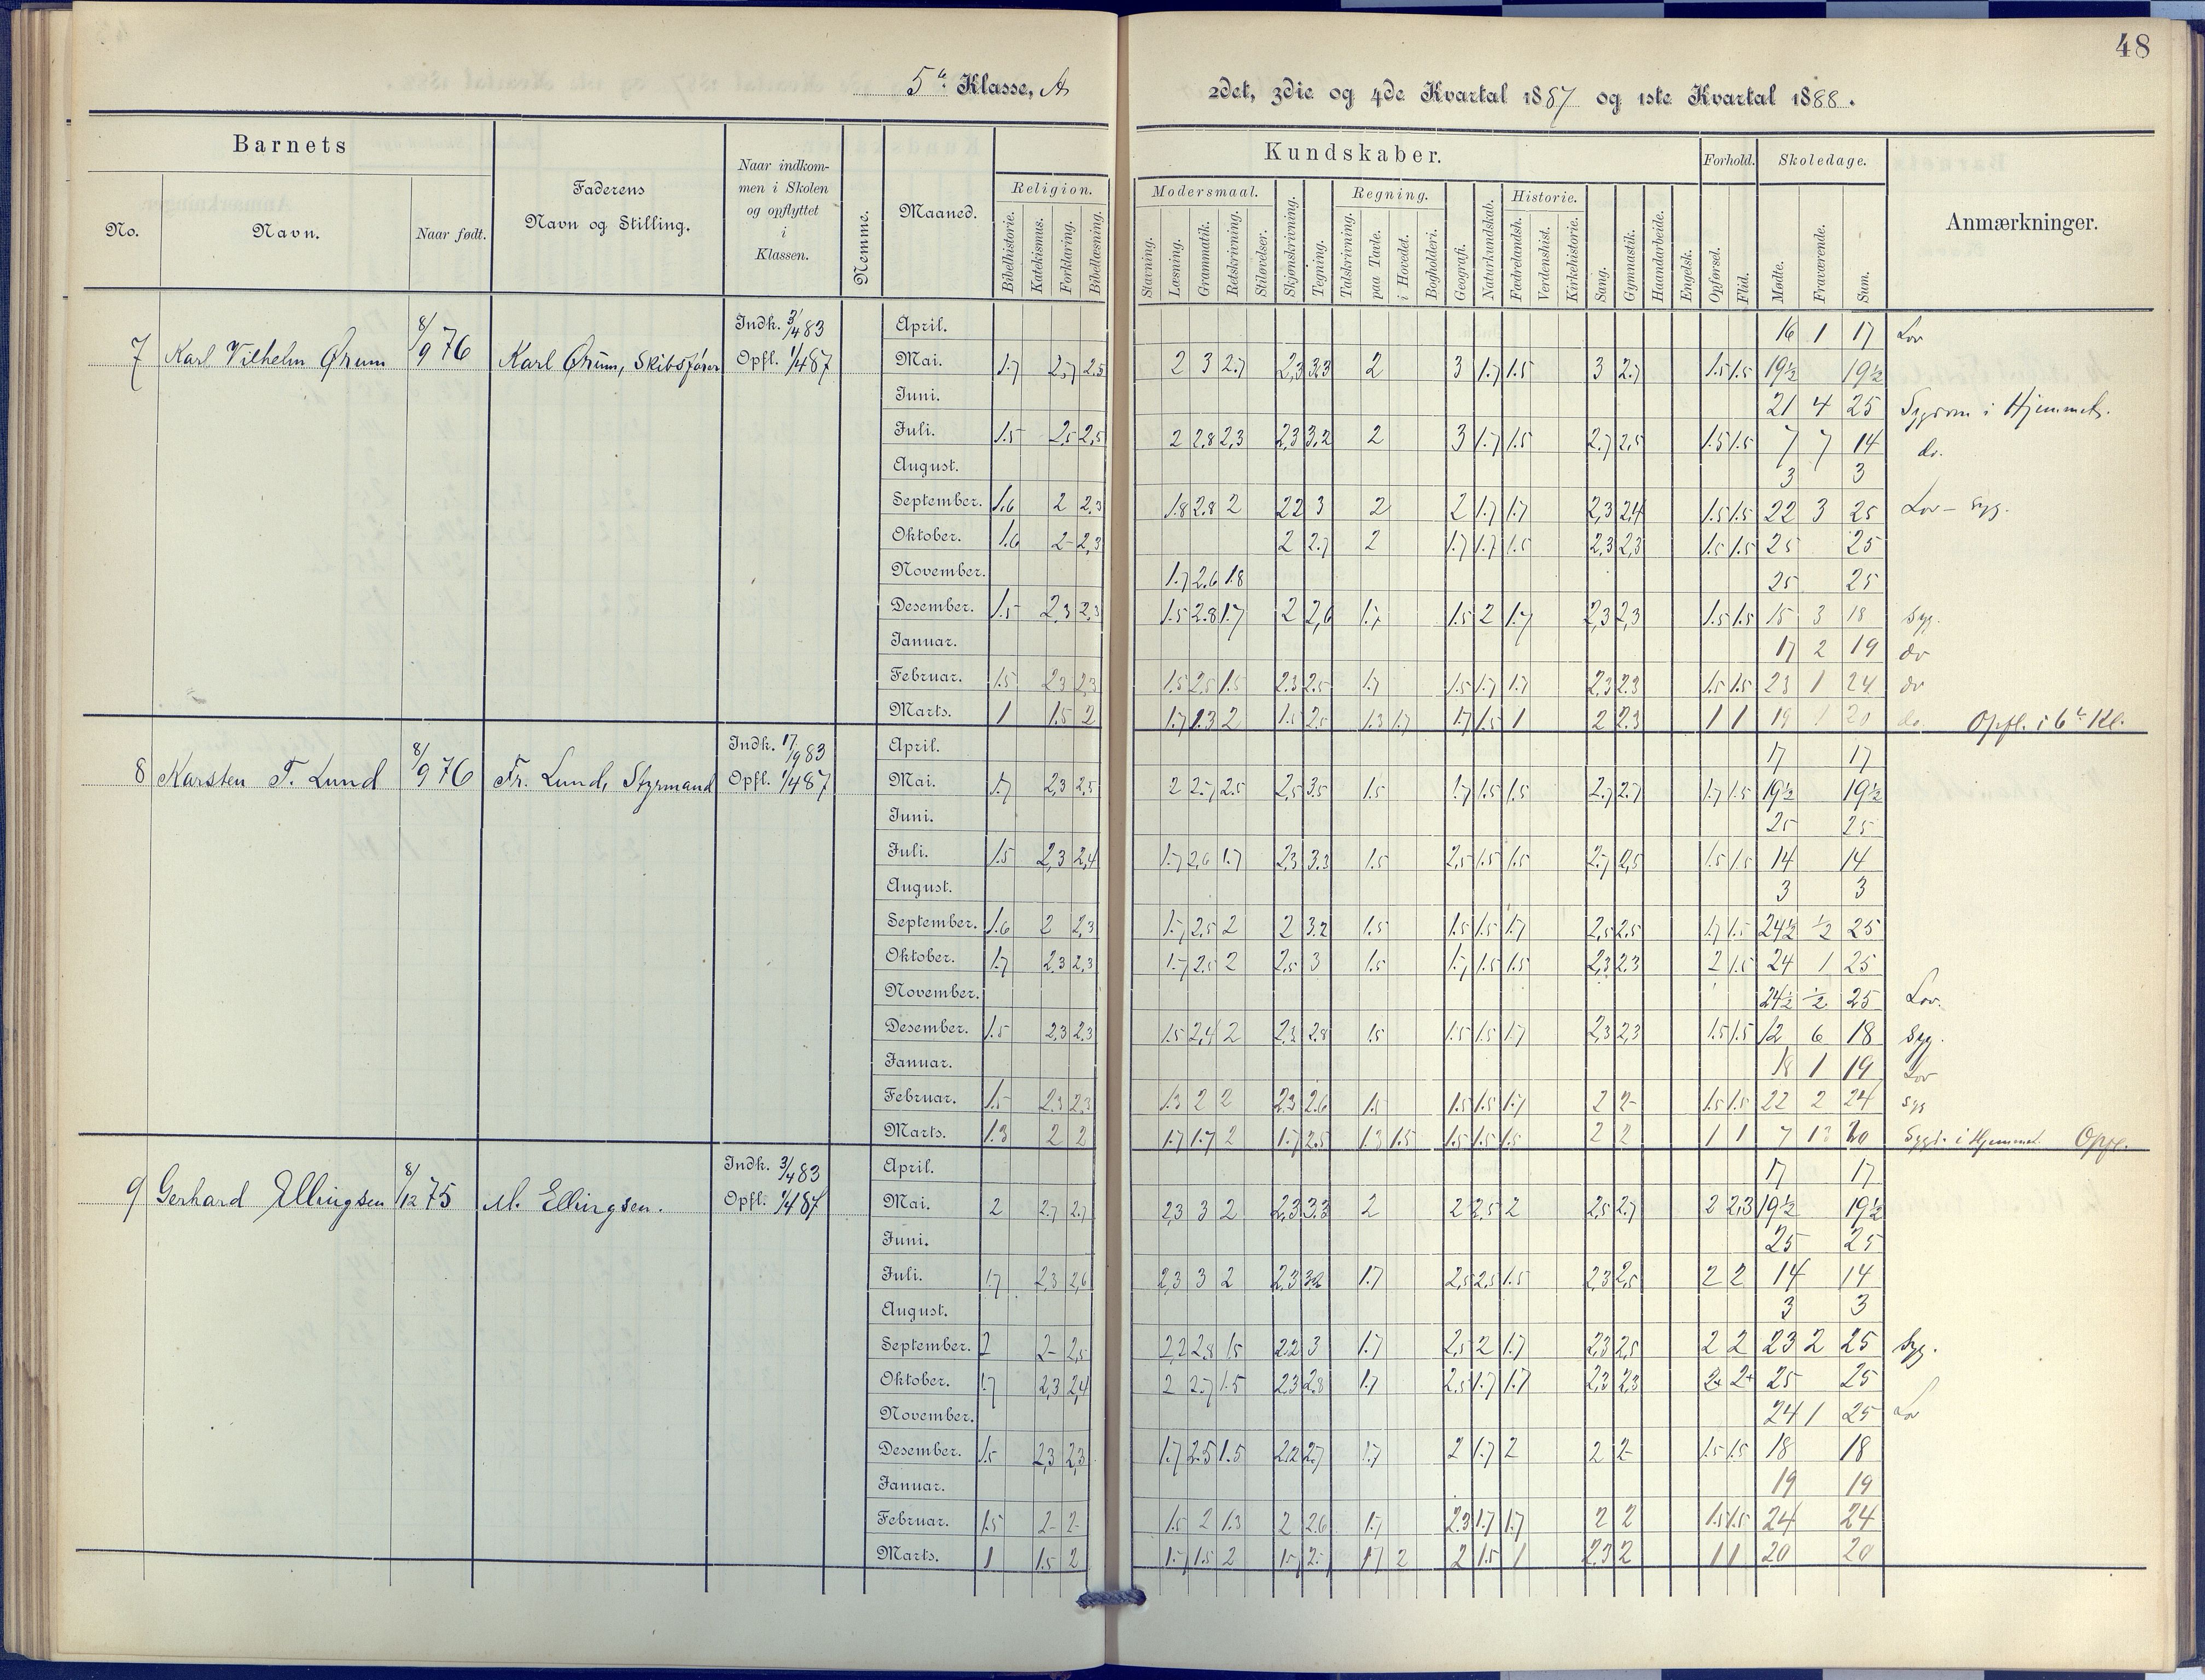 48
5te Klasse, A
2det, 3die og 4de Kvartal 1887 og 1ste Kvartal 1888.
Barnets
No.
Navn.
Naar født.
Faderens
Navn og Stilling.
Naar indkom-
men i Skolen
og opflyttet
i
Klassen.
Nemme.
Maaned.
Kundskaber.
Religion.
Bibelhistorie.
Katekismus.
Forklaring.
Bibellæsning.
Modersmaal.
Stavning.
Læsning.
Grammatik.
Retskrivning.
Stiløvelser.
Skjønskrivning.
Tegning.
Regning.
Talskrivning.
paa Tavle.
i Hovedet.
Bogholderi.
Geografi.
Naturkundskab.
Historie.
Fædrelandsh.
Verdenshist.
Kirkehistorie.
Sang.
Gymnastik.
Haandarbeide.
Engelsk.
Forhold.
Opførsel.
Flid.
Skoledage.
Mødte.
Fraværende.
Sum.
Anmærkninger.
7 Karl Vilhelm Ørum 8/9 76 Karl Ørum, Skibsfører
Indk. 3/4 83
Opfl. 1/4 87
April. 16 1 17 Lov
Mai. 1.7 2,7 2.5 2 3 2.7 2,3 3,3 2 3 1.7 1.5 3 2.7 1.5 1.5 19½ 19½
Juni. 21 4 25 Sygdom i Hjemmet.
Juli. 1.5 2,5 2,5 2 2.8 2,3 2,3 3,2 2 3 1.7 1.5 2.7 2,5 1.5 1.5 7 7 14 do.
August. 3 3
September. 1.6 2 2,3 1.8 2.8 2 2 2 3 2 2 1.7 1.7 2,3 2,4 1.5 1.5 22 3 25 Lov - syg.
Oktober. 1.6 2- 2,3 2 2.7 2 1.7 1.7 1.5 2,3 2,3 1.5 1.5 25 25
November. 1.7 2.6 1.8 25 25
Desember. 1.5 2,3 2,3 1.5 2.8 1.7 2 2,6 1.7 1.5 2 1.7 2,3 2,3 1.5 1.5 15 3 18 Syg.
Januar. 17 2 19 do
Februar. 1.5 2,3 2,3 1.5 2,5 1.5 2.3 2.5 1.7 1.5 1.7 1.7 2,3 2.3 1.5 1.5 23 1 24 do
Marts. 1 1.5 2 1.7 1.3 2 1.5 2.5 1.3 1.7 1.7 1.5 1 2 2.3 1 1 19 1 20 do. Opfl. i 6te Kl.
8 Karsten T. Lund 8/9 76 Fr. Lund, Styrmand
Indk. 17/9 83
Opfl. 1/4 87
April. 17 17
Mai. 1.7 2,3 2,5 2 2.7 2.5 2,5 3.5 1.5 1.7 1.5 1.5 2.7 2.7 1.7 1.5 19½ 19½
Juni. 25 25
Juli. 1.5 2,3 2,4 1.7 2,6 1.7 2,3 3.3 1.5 2,5 1.5 1.5 2.7 2,5 1.5 1.5 14 14
August. 3 3
September. 1.6 2 2,3 1.7 2,5 2 2 3.2 1.5 1.5 1.5 1.7 2,5 2.5 1.7 1.5 24½ ½ 25
Oktober. 1.7 2.3 2,3 1.7 2.5 2 2,5 3 1.5 1.7 1.5 1.5 2,3 2.3 2 1.5 24 1 25
November. 24½ ½ 25 Lov.
Desember. 1.5 2,3 2,3 1.5 2,4 2 2,3 2.8 1.5 1.5 1.5 1.7 2,3 2,3 1.5 1.5 12 6 18 Syg.
Januar. 18 1 19 Lov
Februar. 1.5 2.3 2,3 1.3 2 2 2,3 2.6 1.5 1.5 1.5 1.7 2 2- 1.5 1.5 22 2 24 syg
Marts. 1.3 2 2 1.7 1.7 2 1.7 2.5 1.3 1.5 1.5 1.5 1.5 2 2 1 1 7 13 20 Sygd. i Hjemmet. Opfl.
9 Gerhard Ellingsen 8/12 75 M. Ellingsen.
Indk. 3/4 83
Opfl. 1/4 87
April. 17 17
Mai. 2 2.7 2.7 2,3 3 2 2,3 3,3 2 2 2,5 2 2,5 2.7 2 2,3 19½ 19½
Juni. 25 25
Juli. 1.7 2,3 2,6 2,3 3 2 2,3 3.2 1.7 2,5 2,5 1.5 2,3 2,5 2 2 14 14
August. 3 3
September. 2 2- 2,5 2,2 2.8 1.5 2.2 3 1.7 2,5 2 1.7 2,3 2,5 2 2 23 2 25 Syg.
Oktober. 1.7 2,3 2,4 2 2.7 1.5 2,3 2.8 1.7 2.5 1.7 1.7 2,3 2,3 2+ 2+ 25 25
November. 24 1 25 Lov
Desember. 1.5 2,3 2,3 1.7 2.5 1.5 2,2 2,7 1.7 2 1.7 2 2 2- 1.5 1.5 18 18
Januar. 19 19
Februar. 1.5 2- 2- 1.5 2 1.3 2 2.6 1.7 2.3 1.7 1.7 2 2 1.5 1.5 24 24
Marts. 1 1.5 2 1.7 1.5 2 1.7 2.7 1.7 2 2 1.5 1 2.3 2 1 1 20 20